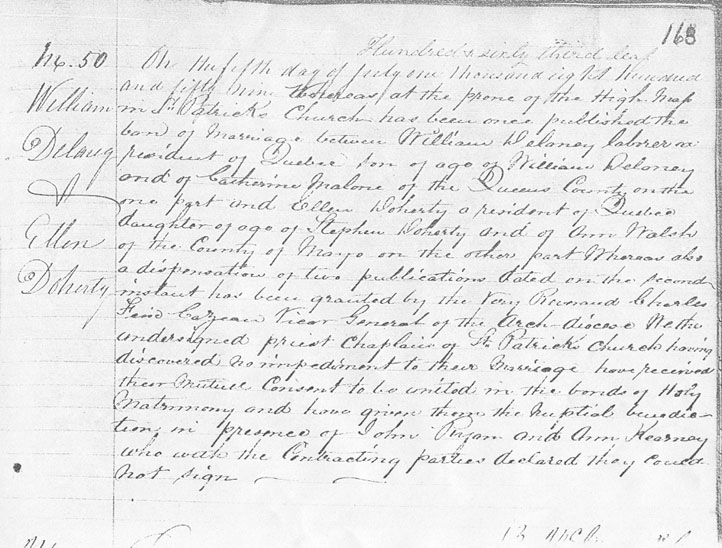 168
Hundred & sixty third leaf
No. 50
William
Delany
&
Ellen
Doherty
On the fifth day of July one thousand eight hundred
and fifty nine Whereas, at the prone of the High Mass
in St Patrick's Church has been once published the
ban of Marriage between William Delaney laborer a
resident of Quebec son of age of William Delaney
and of Catherine Malone of the Queens County on the
one part and Ellen Doherty a resident of Quebec
daughter of age of Stephen Doherty and of Ann Walsh
of the County of Mayo on the other part Whereas also
a dispensation of two publications dated on the second
instant has been granted by the Very Reverend Charles
Felix Cazeau Vicar General of the Arch-diocese We the
undersigned priest Chaplain of St Patrick's Church having
discovered no impediment to their Marriage have received
their Mutual Consent to be united in the bonds of Holy
Matrimony and have given them the Nuptial benedic-
tion, in presence of John Ryan and Ann Kearney
who with the Contracting parties declared they could
not sign